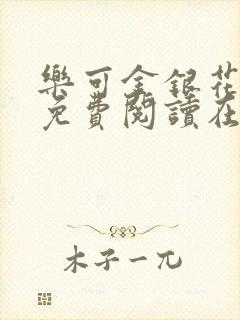 樂可金銀花
免費閱讀在
木子一兀